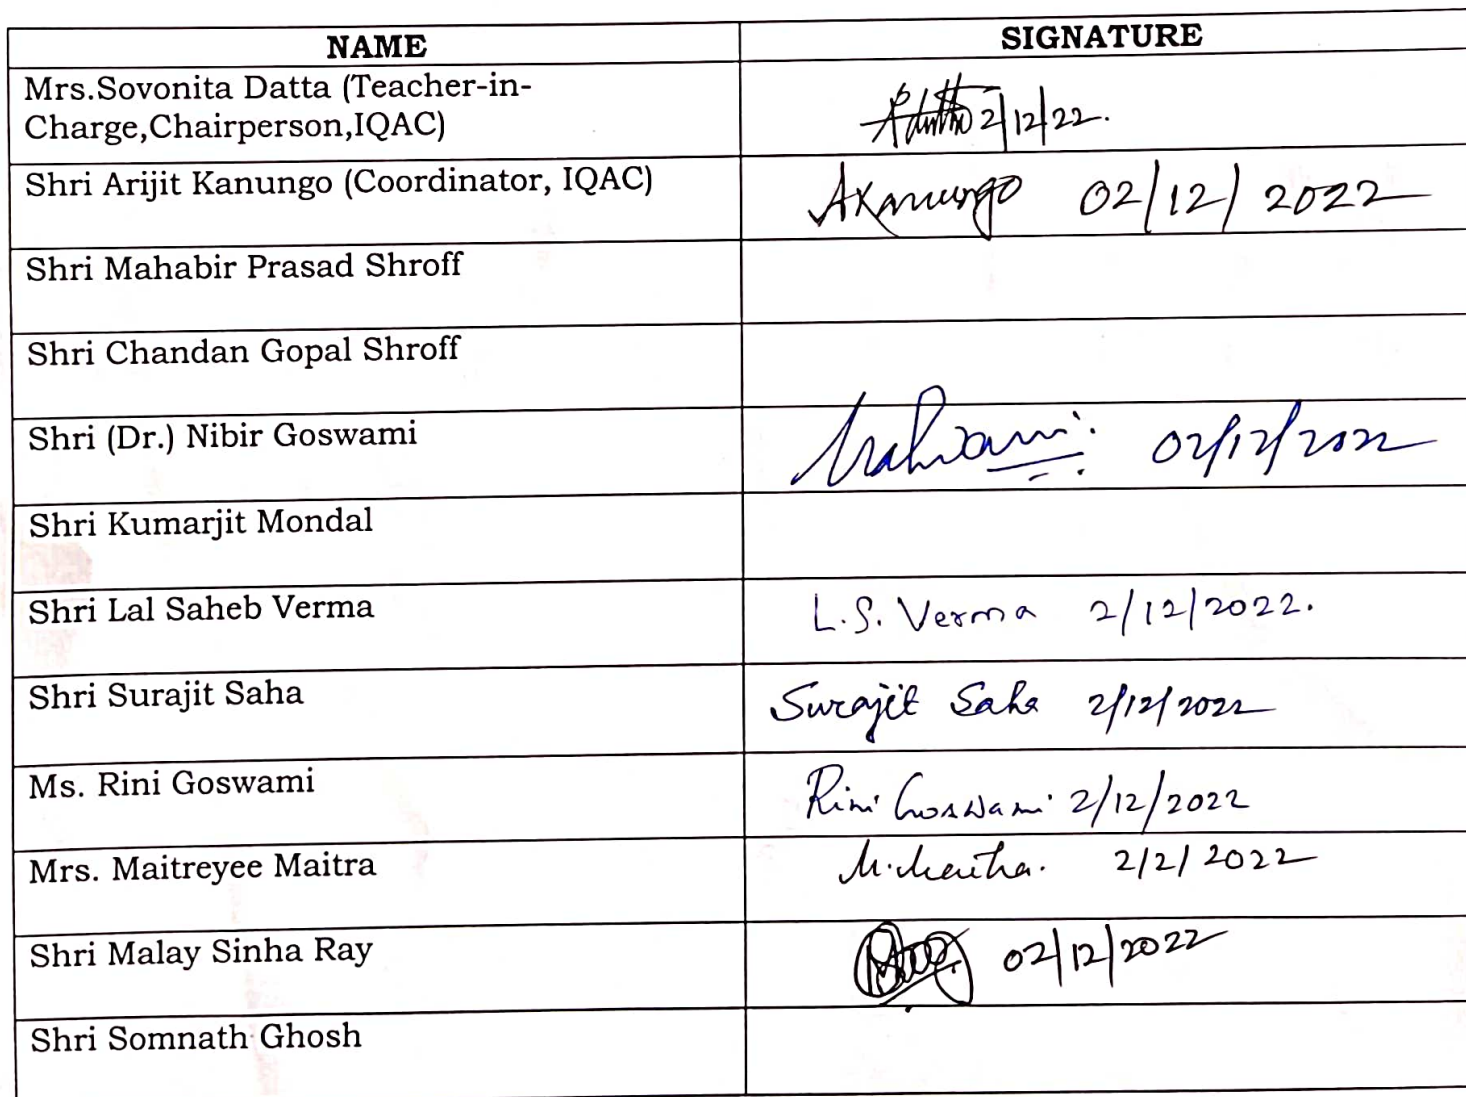 NAME SIGNATURE
Mrs.Sovonita Datta (Teacher-in-
Charge,Chairperson,IQAC) 2/12/22.
Shri Arijit Kanungo (Coordinator, IQAC) AKanungo 02/12/2022
Shri Mahabir Prasad Shroff
Shri Chandan Gopal Shroff
Shri (Dr.) Nibir Goswami 02/12/2022
Shri Kumarjit Mondal
Shri Lal Saheb Verma L.S. Verma 2/12/2022.
Shri Surajit Saha Surajit Saha 2/12/2022
Ms. Rini Goswami Rini Goswami 2/12/2022
Mrs. Maitreyee Maitra M. Maitra. 2/2/2022
Shri Malay Sinha Ray 02/12/2022
Shri Somnath Ghosh